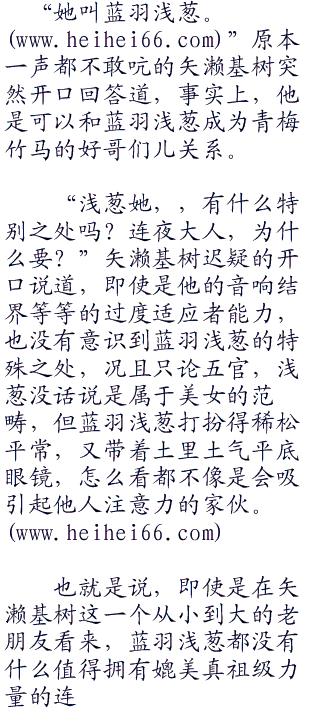 “她叫蓝羽浅葱。
(www.heihei66.com)”原本
一声都不敢吭的矢濑基树突
然开口回答道，事实上，他
是可以和蓝羽浅葱成为青梅
竹马的好哥们儿关系。
“浅葱她，，有什么特
别之处吗？连夜大人，为什
么要？”矢濑基树迟疑的开
口说道，即使是他的音响结
界等等的过度适应者能力，
也没有意识到蓝羽浅葱的特
殊之处，况且只论五官，浅
葱没话说是属于美女的范
畴，但蓝羽浅葱打扮得稀松
平常，又带着土里土气平底
眼镜，怎么看都不像是会吸
引起他人注意力的家伙。
(www.heihei66.com)
也就是说，即使是在矢
濑基树这一个从小到大的老
朋友看来，蓝羽浅葱都没有
什么值得拥有媲美真祖级力
量的连